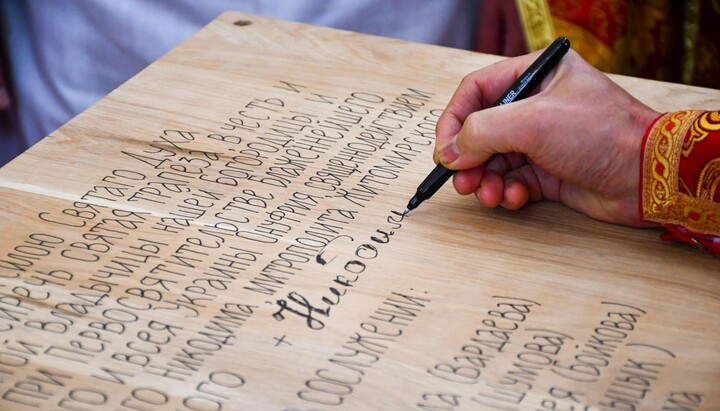 мою Святаго Духа
святая трапеза в честь и
ой Владычицы нашей Богородицы и
при Первосвятительстве Блаженнейшего
и всея Украины Онуфрия священнодействием
Никодима митрополита Житомирского
ого
+ Никодим
сослужении:
на (Вардаева)
(Шумова)
ея (Бойкова)
LINER